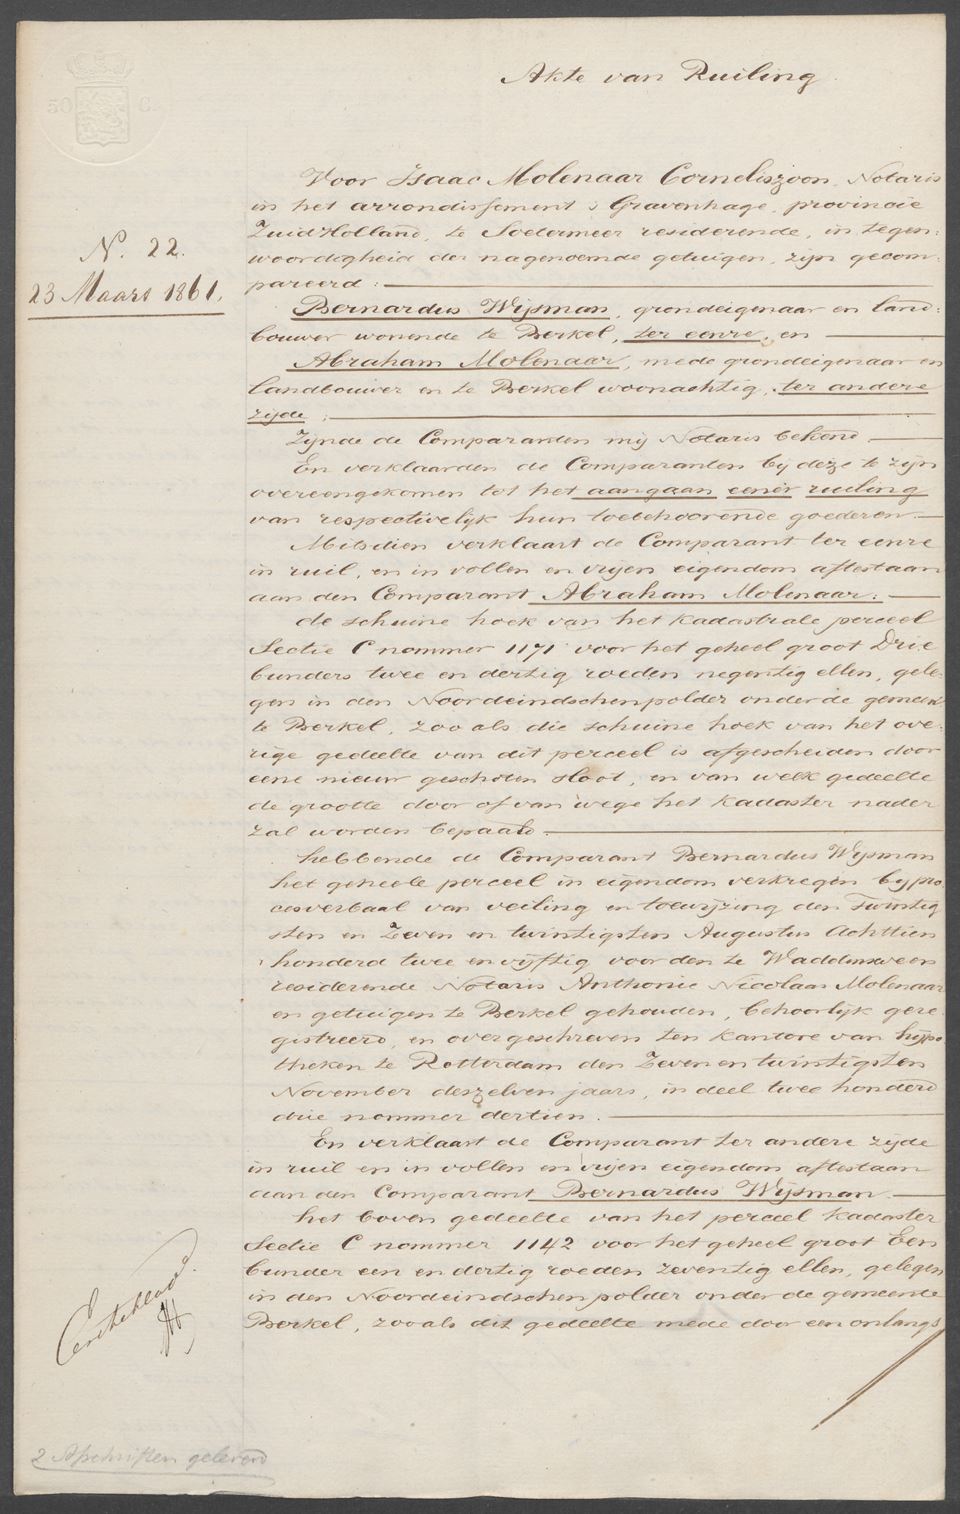 Akte van Ruiling
50 C.
N. 22.
23 Maart 1861.
Voor Isaac Molenaar Corneliszoon, Notaris
in het arrondissement s Gravenhage, provincie
ZuidHolland, te Soetermeer residerende, in tegen-
woordigheid der nagenoemde getuigen, zijn gecom-
pareerd:
Bernardus Wijsman, grondeigenaar en land-
bouwer wonende te Berkel, ter eenre, en
Abraham Molenaar, mede grondeigenaar en
landbouwer en te Berkel woonachtig, ter andere
zijde;
Zijnde de Comparanten mij Notaris bekend
En verklaarden de Comparanten bij deze te zijn
overeengekomen tot het aangaan eener ruiling
van respectivelijk hun toebehoorende goederen.
Mitsdien verklaart de Comparant ter eenre
in ruil, en in vollen en vrijen eigendom aftestaan
aan den Comparant Abraham Molenaar:
de schuine hoek van het kadastrale perceel
Sectie C nommer 1171 voor het geheel groot Drie
bunders twee en dertig roeden negentig ellen, gele-
gen in den Noordeindschenpolder onder de gemeen-
te Berkel, zoo als die schuine hoek van het ove-
rige gedeelte van dit perceel is afgescheiden door
eene nieuw geschoten sloot, en van welk gedeelte
de grootte door of van wege het kadaster nader
zal worden bepaald.
hebbende de Comparant Bernardus Wijsman
het geheele perceel in eigendom verkregen bij pro-
cesverbaal van veiling en toewijzing den Twintig
sten en Zeven en twintigsten Augustus Achttien
honderd twee en vijftig voor den te Waddinxveen
residerende Notaris Anthonie Nicolaas Molenaar
en getuigen te Berkel gehouden, behoorlijk gere-
gistreerd, en overgeschreven ten kantore van hijpo-
theken te Rotterdam den Zeven en twintigsten
November deszelven jaars, in deel twee honderd
drie nommer dertien.
En verklaart de Comparant ter andere zijde
in ruil en in vollen en vrijen eigendom aftestaan
aan den Comparant Bernardus Wijsman
het boven gedeelte van het perceel kadaster
Sectie C nommer 1142 voor het geheel groot Een
bunder een en dertig roeden zeventig ellen, gelegen
in den Noordeindschen polder onder de gemeente
Berkel, zooals dit gedeelte mede door een onlangs
Eerste blad
2 Afschriften geleverd